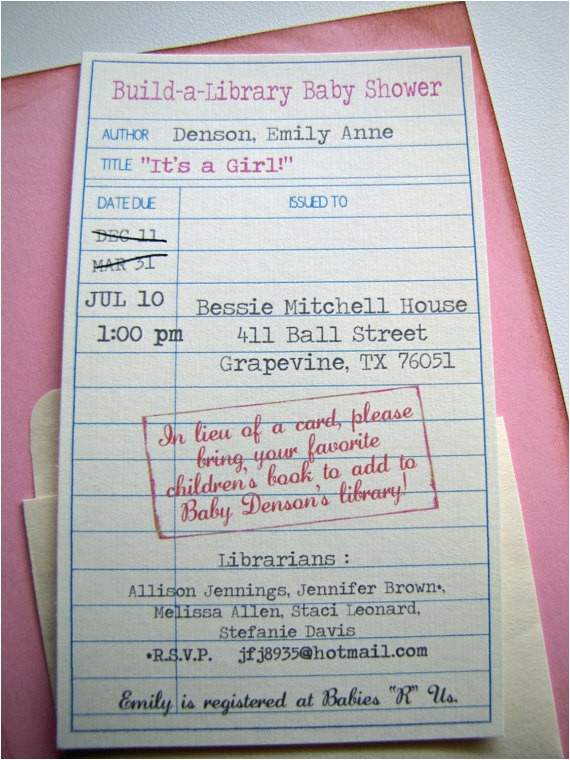 Build-a-Library Baby Shower
AUTHOR Denson, Emily Anne
TITLE "It's a Girl!"
DATE DUE ISSUED TO
DEC 11
MAR 31
JUL 10
Bessie Mitchell House
1:00 pm 411 Ball Street
Grapevine, TX 76051
In lieu of a card, please
bring your favorite
children's book to add to
Baby Denson's library!
Librarians :
Allison Jennings, Jennifer Brown•,
Melissa Allen, Staci Leonard,
Stefanie Davis
•R.S.V.P. jfj8935@hotmail.com
Emily is registered at Babies "R" Us.